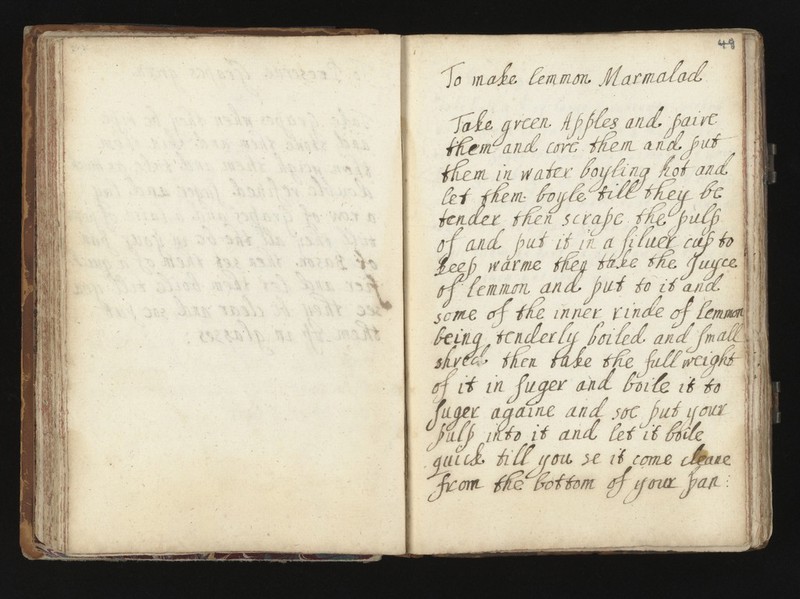 48
To make lemmon Marmalad
Take green Apples and paire
them and core them and put
them in water boyling hot and
let them boyle till they be
tender then scrape the pulp
of and put it in a silver cup to
keep warme then take the Juyce
of lemmon and put to it and
some of the inner rinde of lemmon
being tenderly boiled and small
shred then take the full weight
of it in suger and boile it to
suger againe and soe put your
pulp into it and let it boile
quick till you se it come cleane
from the bottom of your pan :